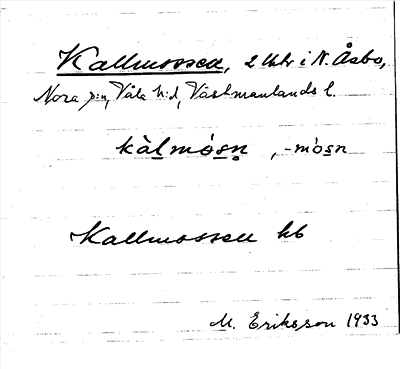 Kallmossen, 2 Uhr i N. Åsbo,
Nora sn, Våla h:d, Västmanlands l.
kàlmósn, -mósn
Kallmossen kb
M. Eriksson 1933